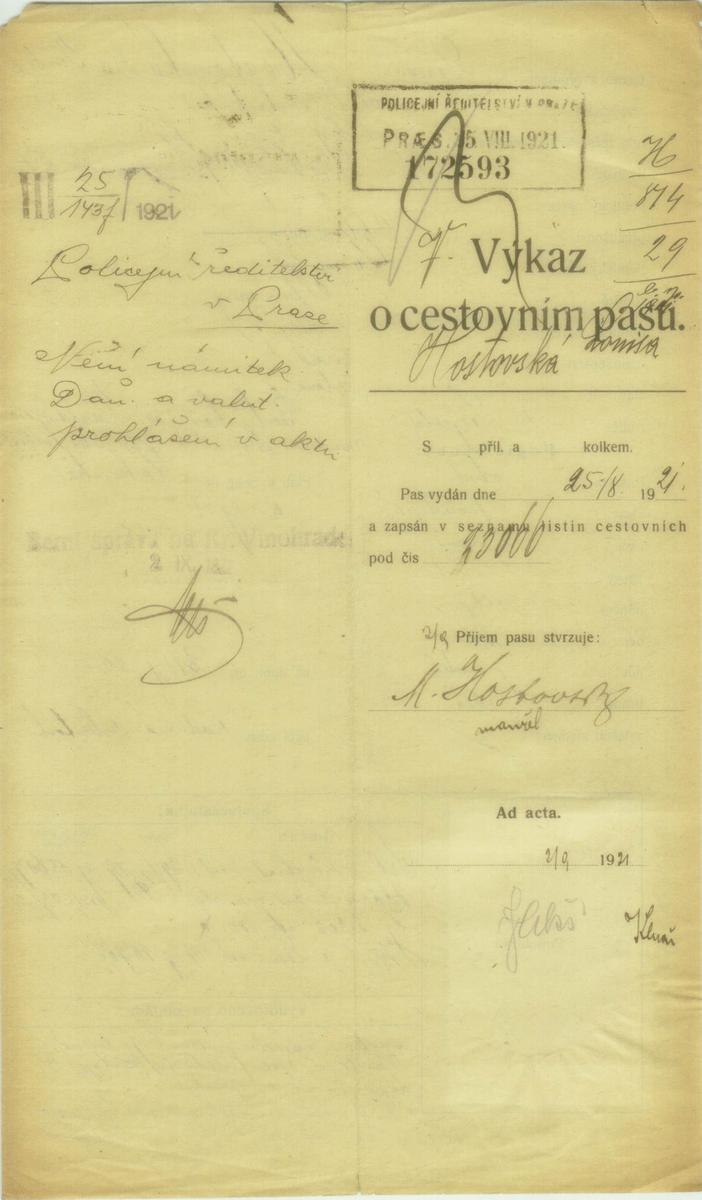 POLICEJNÍ ŘEDITELSTVÍ V PRAZE
PRÆS. 25 VIII. 1921.
172593
H
814
29
III 25
1437 1921
Policejní ředitelství
v Praze
Není námitek.
Daň. a valut.
prohlášení v aktu
Berní správa na Kr. Vinohrade
2 IX.
V. Výkaz
o cestovním pasu.
Hostovská
S příl. a kolkem.
Pas vydán dne 25./8. 1921.
a zapsán v seznamu listin cestovních
pod čís 23066
2/9 Příjem pasu stvrzuje:
M. Hostovský
manžel
Ad acta.
2/9 1921